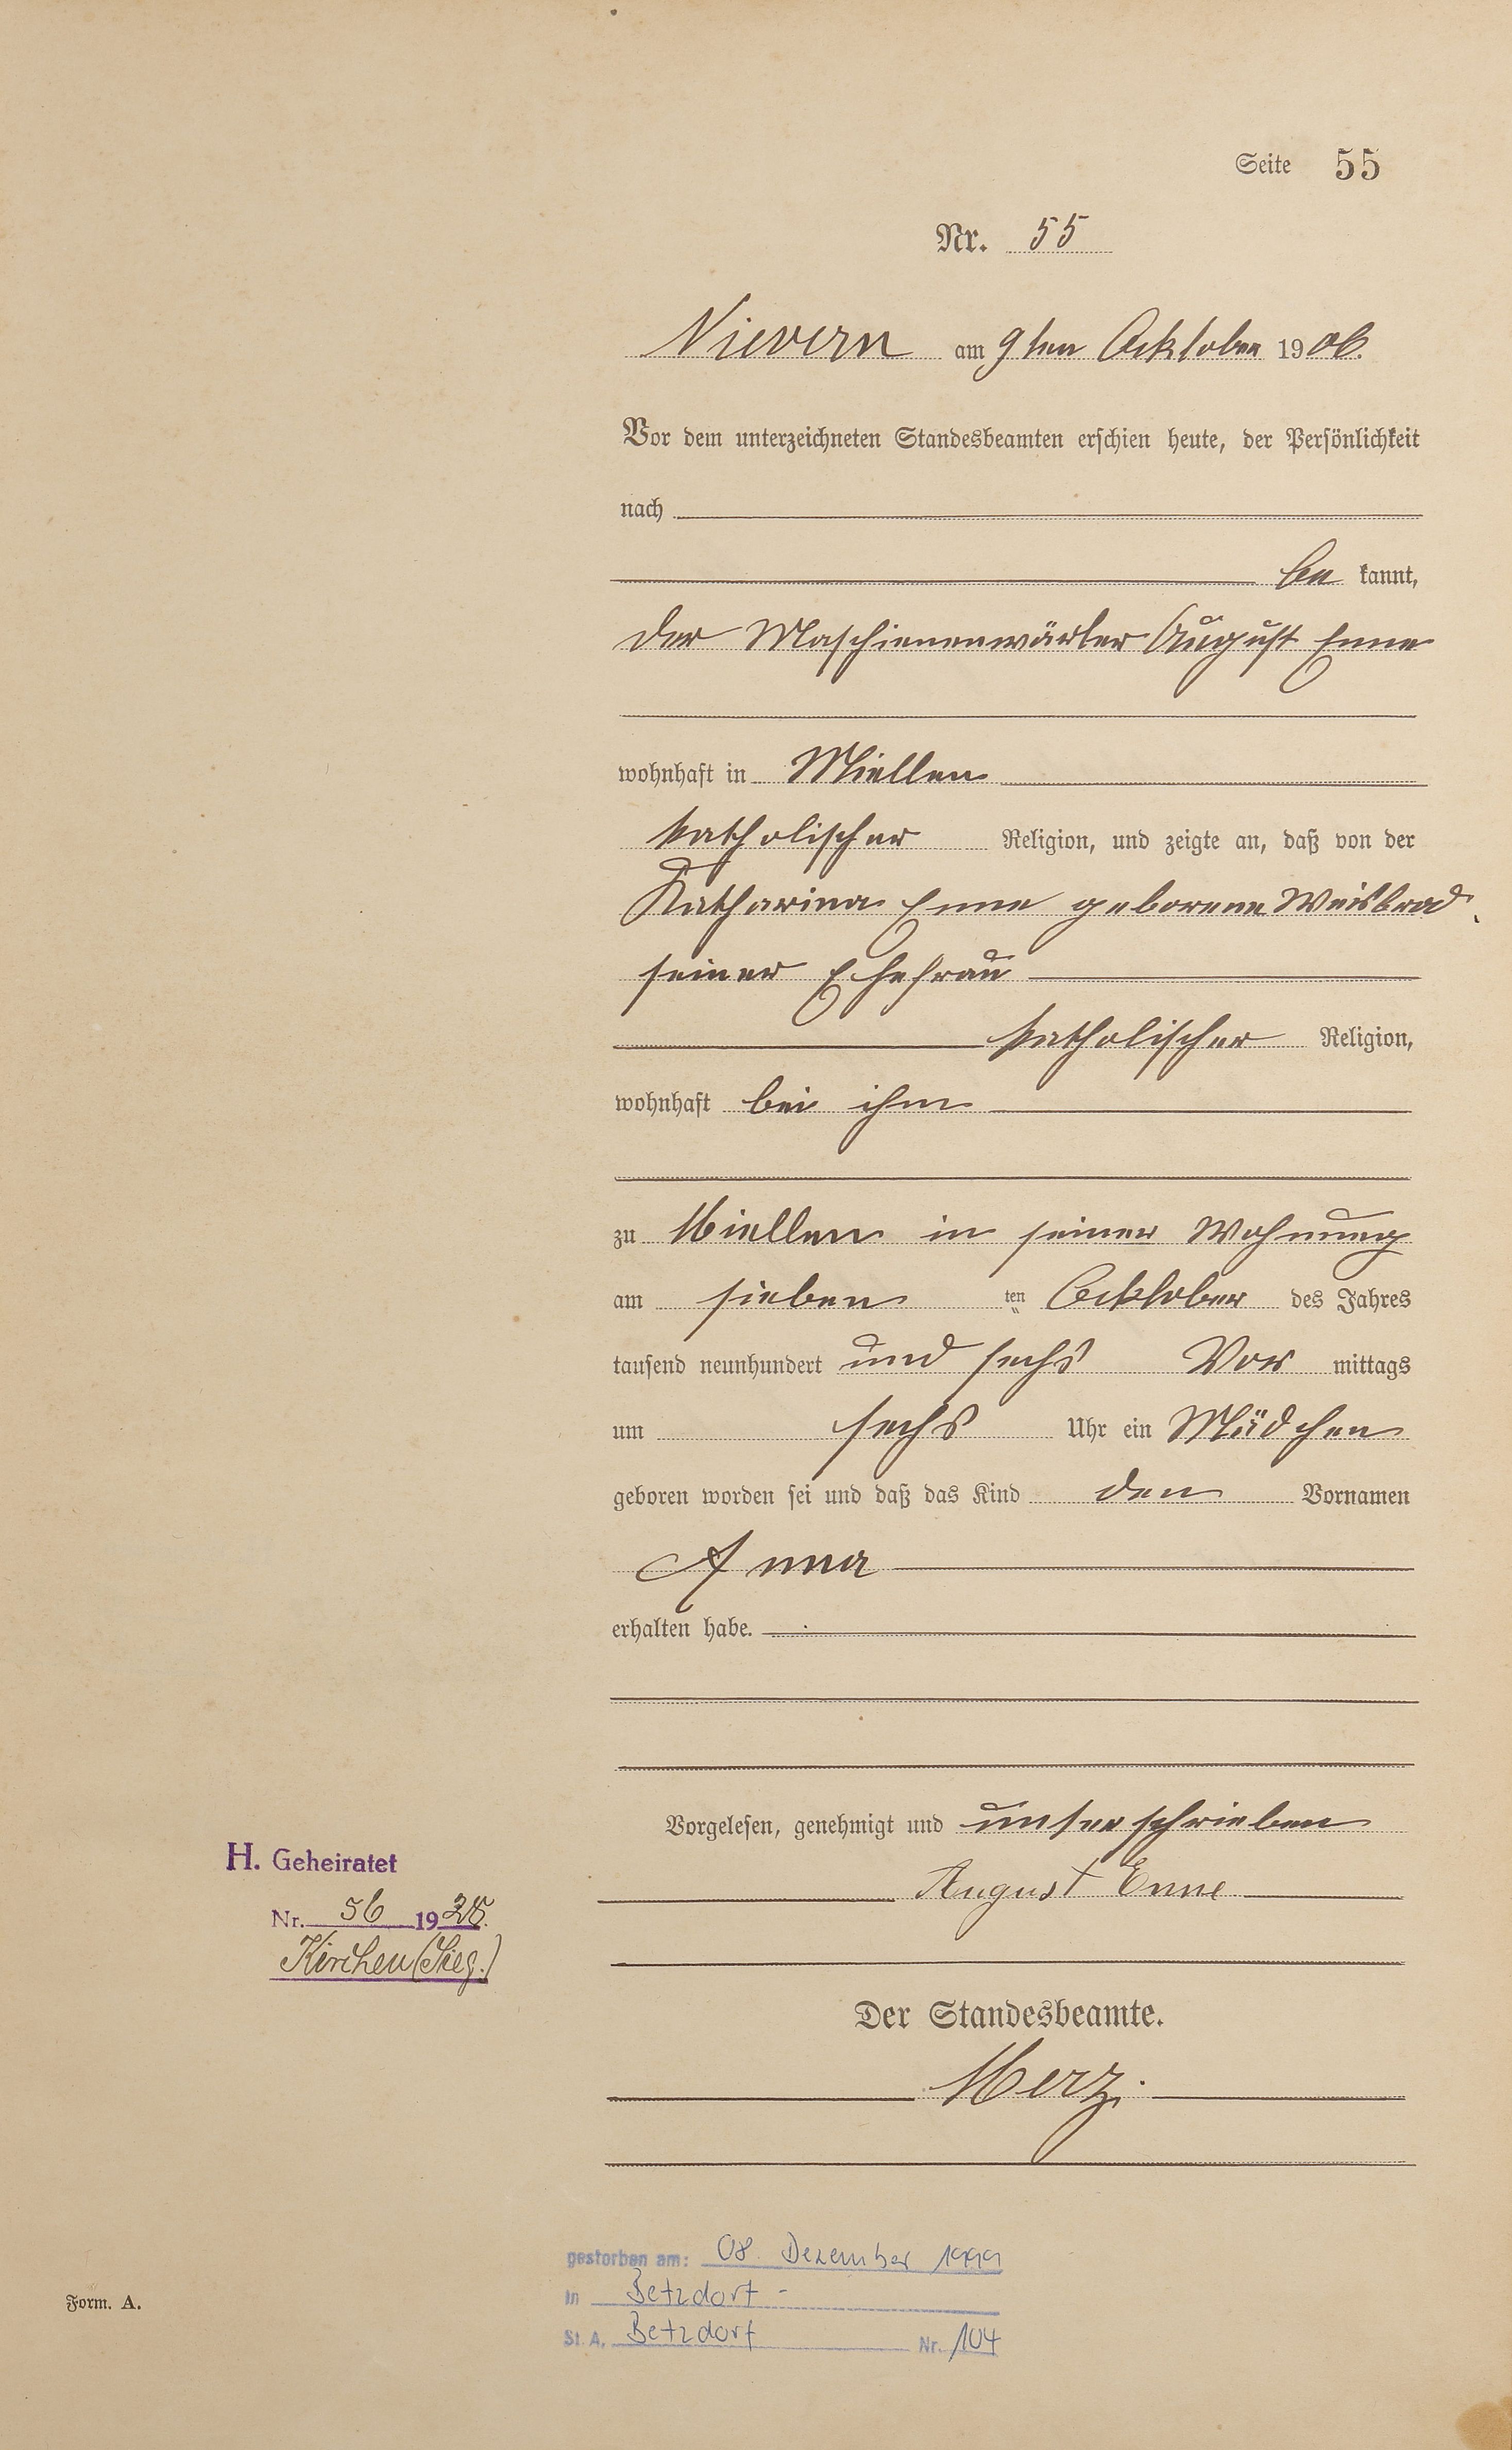 Seite 55
Nr. 55
Nievern am 9ten Ocktober 1906.
Vor dem unterzeichneten Standesbeamten erschien heute, der Persönlichkeit
nach
be kannt,
der Maschienenwärter August Enne
wohnhaft in Miellen
katholischer Religion, und zeigte an, daß von der
Katharina Enne geborene Weisbrod,
seiner Ehefrau
katholischer Religion,
wohnhaft bei ihm
zu Miellen in seiner Wohnung
am sieben ten Ocktober des Jahres
tausend neunhundert und sechs Vor mittags
um sechs Uhr ein Mädchen
geboren worden sei und daß das Kind den Vornamen
Anna
erhalten habe.
Vorgelesen, genehmigt und unterschrieben
August Enne
Der Standesbeamte.
Merz.
H. Geheiratet
Nr. 56 19
Kirchen (Sieg.)
gestorben am: 08. Dezember 1999
in Betzdorf -
St. A. Betzdorf Nr. 104
Form. A.